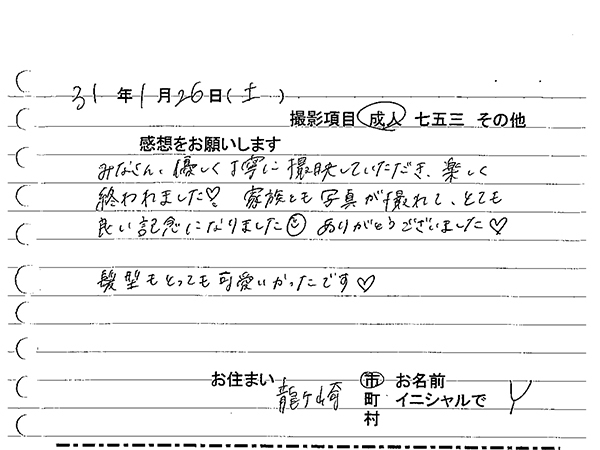 31年1月26日(土)
撮影項目 成人 七五三 その他
感想をお願いします
みなさん、優しく丁寧に撮映していただき、楽しく
終われました♡ 家族とも写真が撮れて、とても
良い記念になりました☺ ありがとうございました♡
髪型もとっても可愛いかったです♡
お住まい 龍ヶ崎 市 お名前
町 イニシャルで Y
村